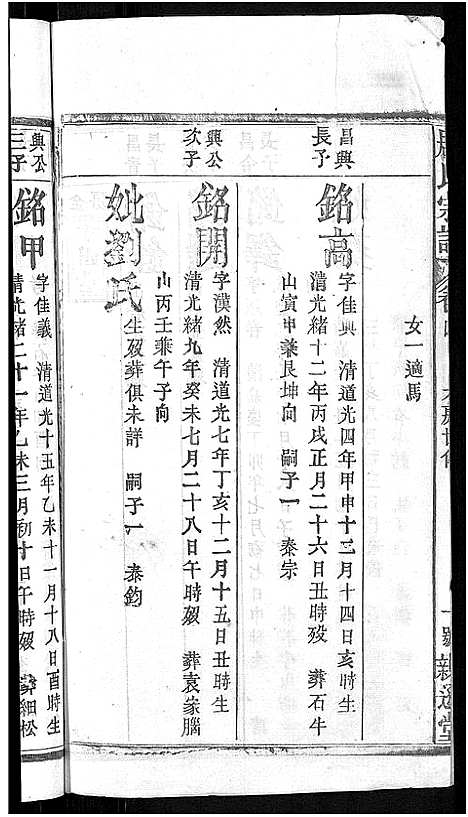 氏宗譜
卷四
親遜堂
女一適馬
昌興長子
銘高
字佳興 清道光四年甲申十二月十四日亥時生
清光緒十二年丙戌正月二十六日丑時殁 葬石牛
山寅甲兼艮坤向 嗣子一 泰宗
興公次子
銘開
字漢然 清道光七年丁亥十二月十五日丑時生
清光緒九年癸未七月二十八日午時殁 葬袁家腦
山丙壬兼午子向
妣劉氏
生殁葬俱未詳 嗣子一 泰鈞
興公三子
銘甲
字佳義 清道光十五年乙未十一月十八日酉時生
清光緒二十一年乙未三月初十日午時殁 葬細松